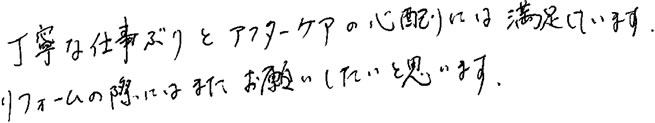 丁寧な仕事ぶりとアフターケアの心配りには満足しています.
リフォームの際にはまたお願いしたいと思います.